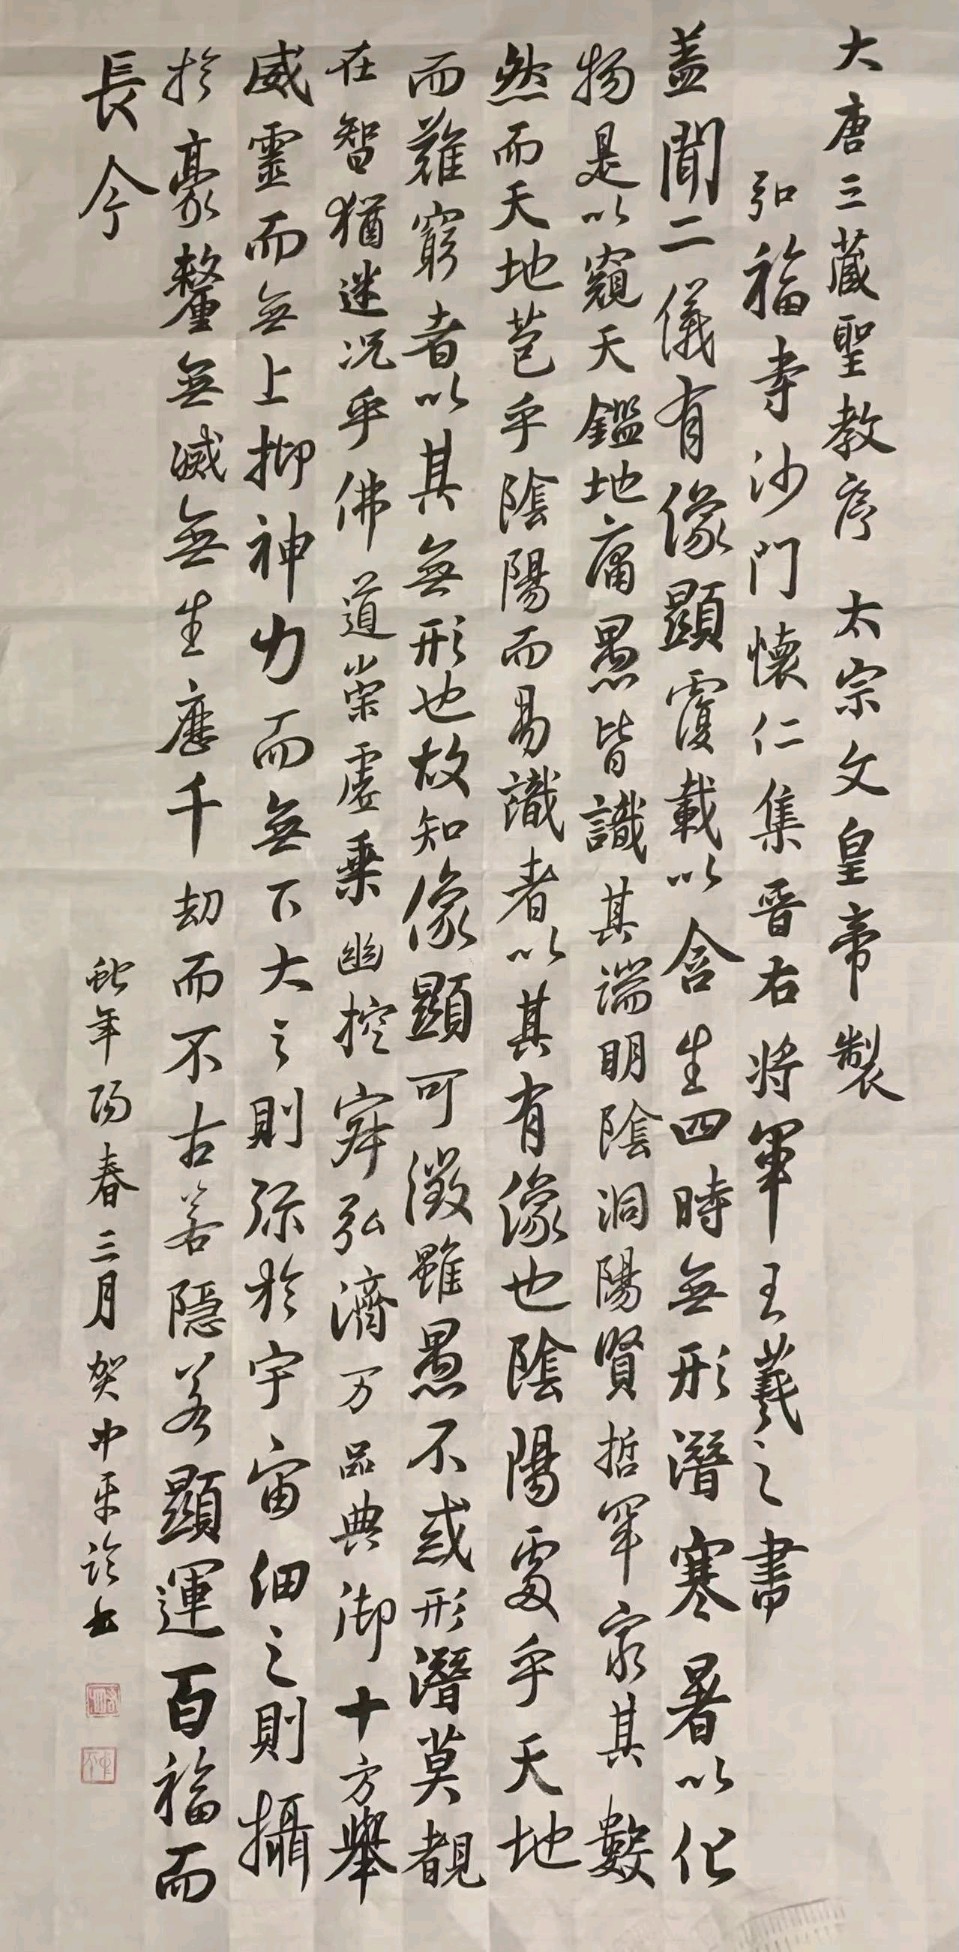 大唐三藏聖教序 太宗文皇帝製
弘福寺沙門懷仁集晉右將軍王羲之書
蓋聞二儀有像顯覆載以含生四時無形潛寒暑以化
物是以窺天鑑地庸愚皆識其端明陰洞陽賢哲罕窮其數
然而天地苞乎陰陽而易識者以其有像也陰陽處乎天地
而難窮者以其無形也故知像顯可徵雖愚不惑形潛莫覩
在智猶迷況乎佛道崇虛乗幽控寂弘濟万品典御十方舉
威靈而無上抑神力而無下大之則弥於宇宙細之則攝
於豪釐無滅無生歷千劫而不古若隱若顯運百福而
長今
蛇年陽春三月賀中平